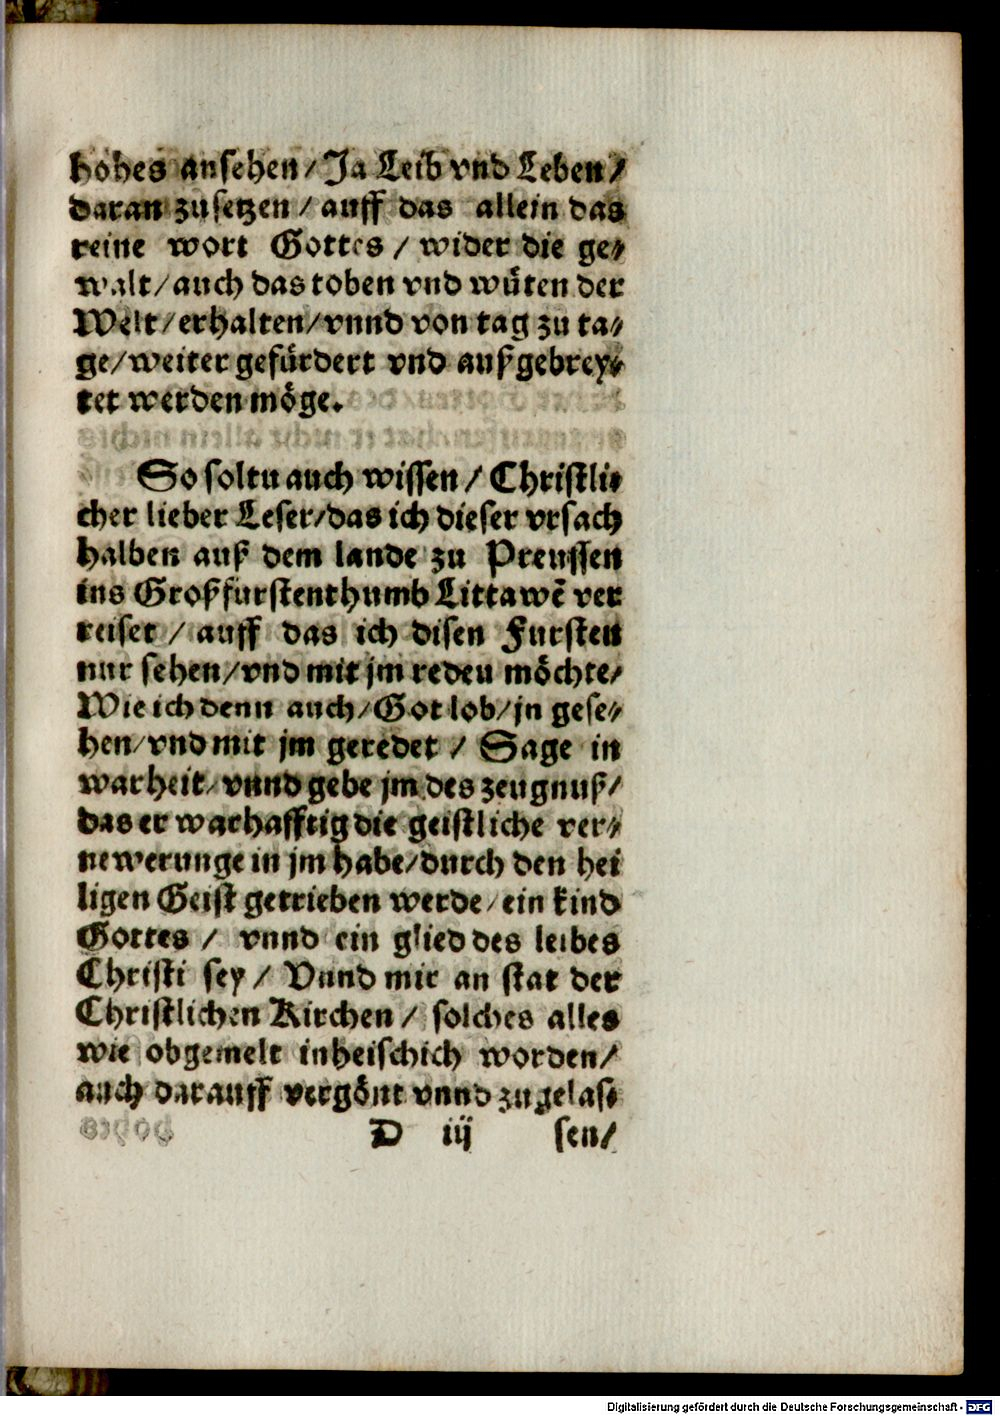 hohes ansehen / Ja Leib vnd Leben /
daran zusetzen / auff das allein das
reine wort Gottes / wider die ge⸗
walt / auch das toben vnd wüten der
Welt / erhalten / vnnd von tag zu ta⸗
ge / weiter gefürdert vnd außgebrey⸗
tet werden möge.
So soltu auch wissen / Christli⸗
cher lieber Leser / das ich dieser vrsach
halben auß dem lande zu Preussen
ins Großfurstenthumb Littawē ver
reiset / auff das ich disen Fursten
nur sehen / vnd mit jm reden möchte /
Wie ich denn auch / Got lob / jn gese⸗
hen / vnd mit jm geredet / Sage in
warheit / vnnd gebe jm des zeugnuß /
das er warhafftig die geistliche ver⸗
newerunge in jm habe / durch den hei
ligen Geist getrieben werde / ein kind
Gottes / vnnd ein glied des leibes
Christi sey / Vnnd mir an stat der
Christlichen Kirchen / solches alles
wie obgemelt inheischich worden /
auch darauff vergönt vnnd zugelas⸗
D iij sen /
Digitalisierung gefördert durch die Deutsche Forschungsgemeinschaft - DFG